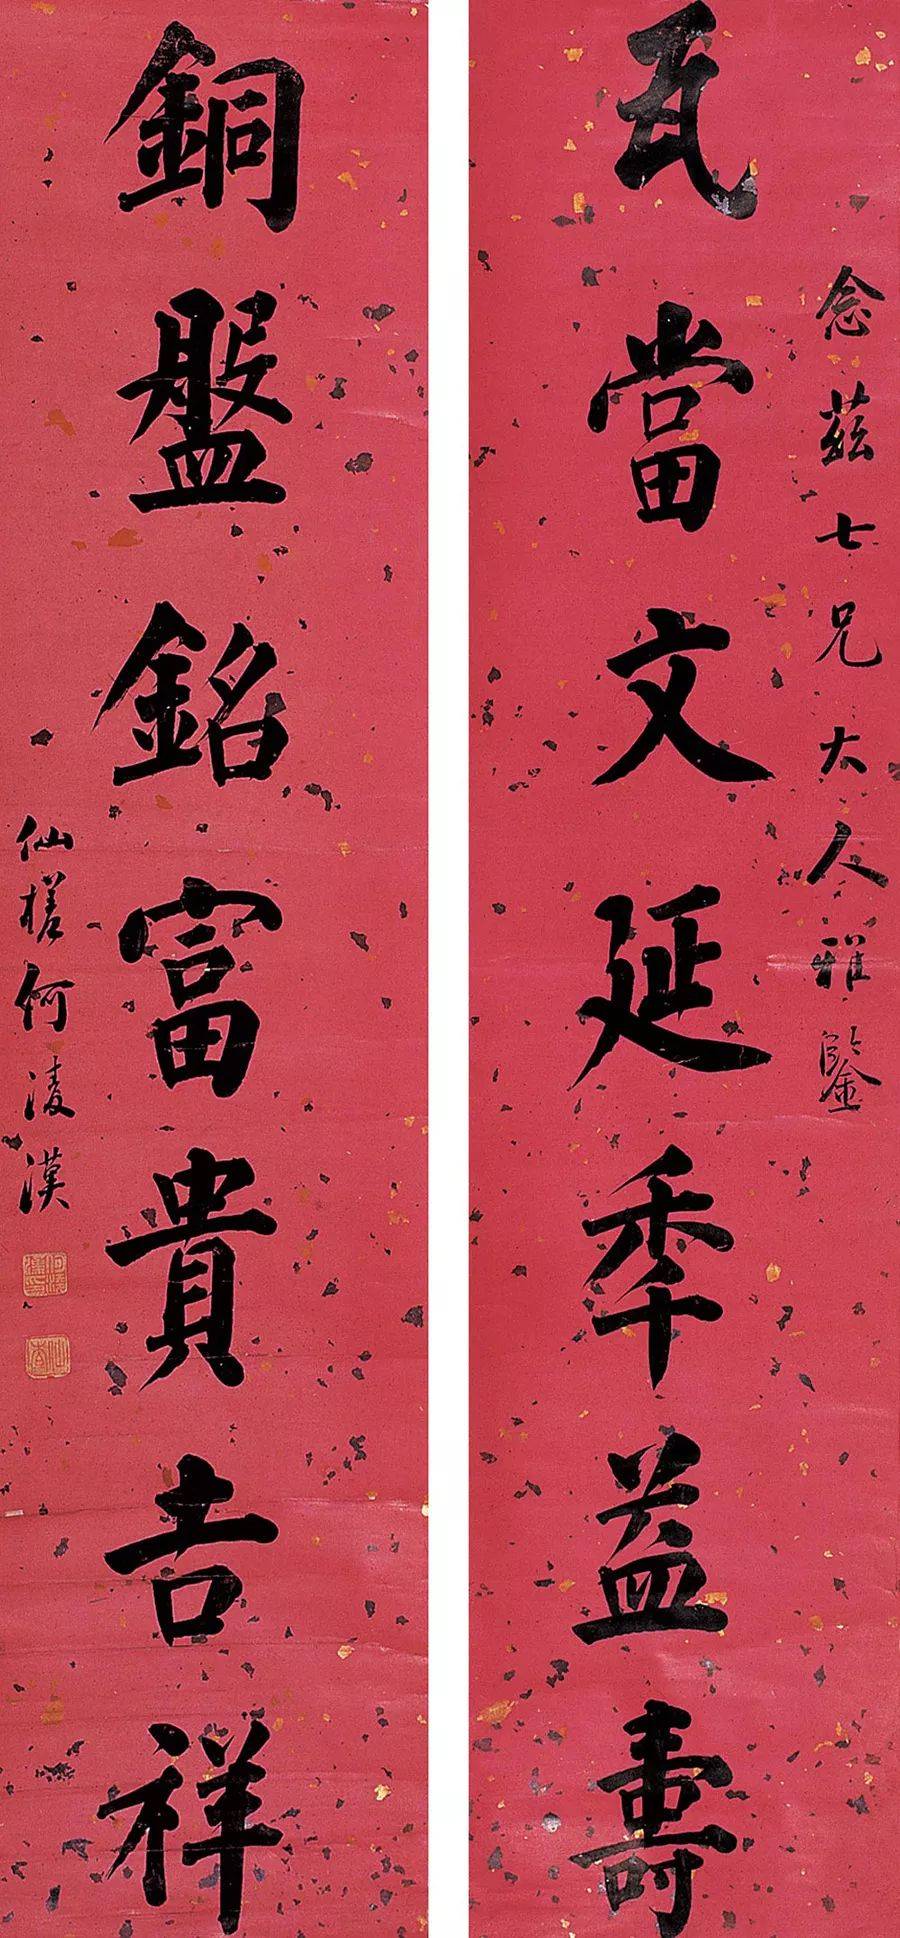 念茲七兄大人雅鑒
瓦當文延秊益壽
銅盤銘富貴吉祥
仙槎何淩漢